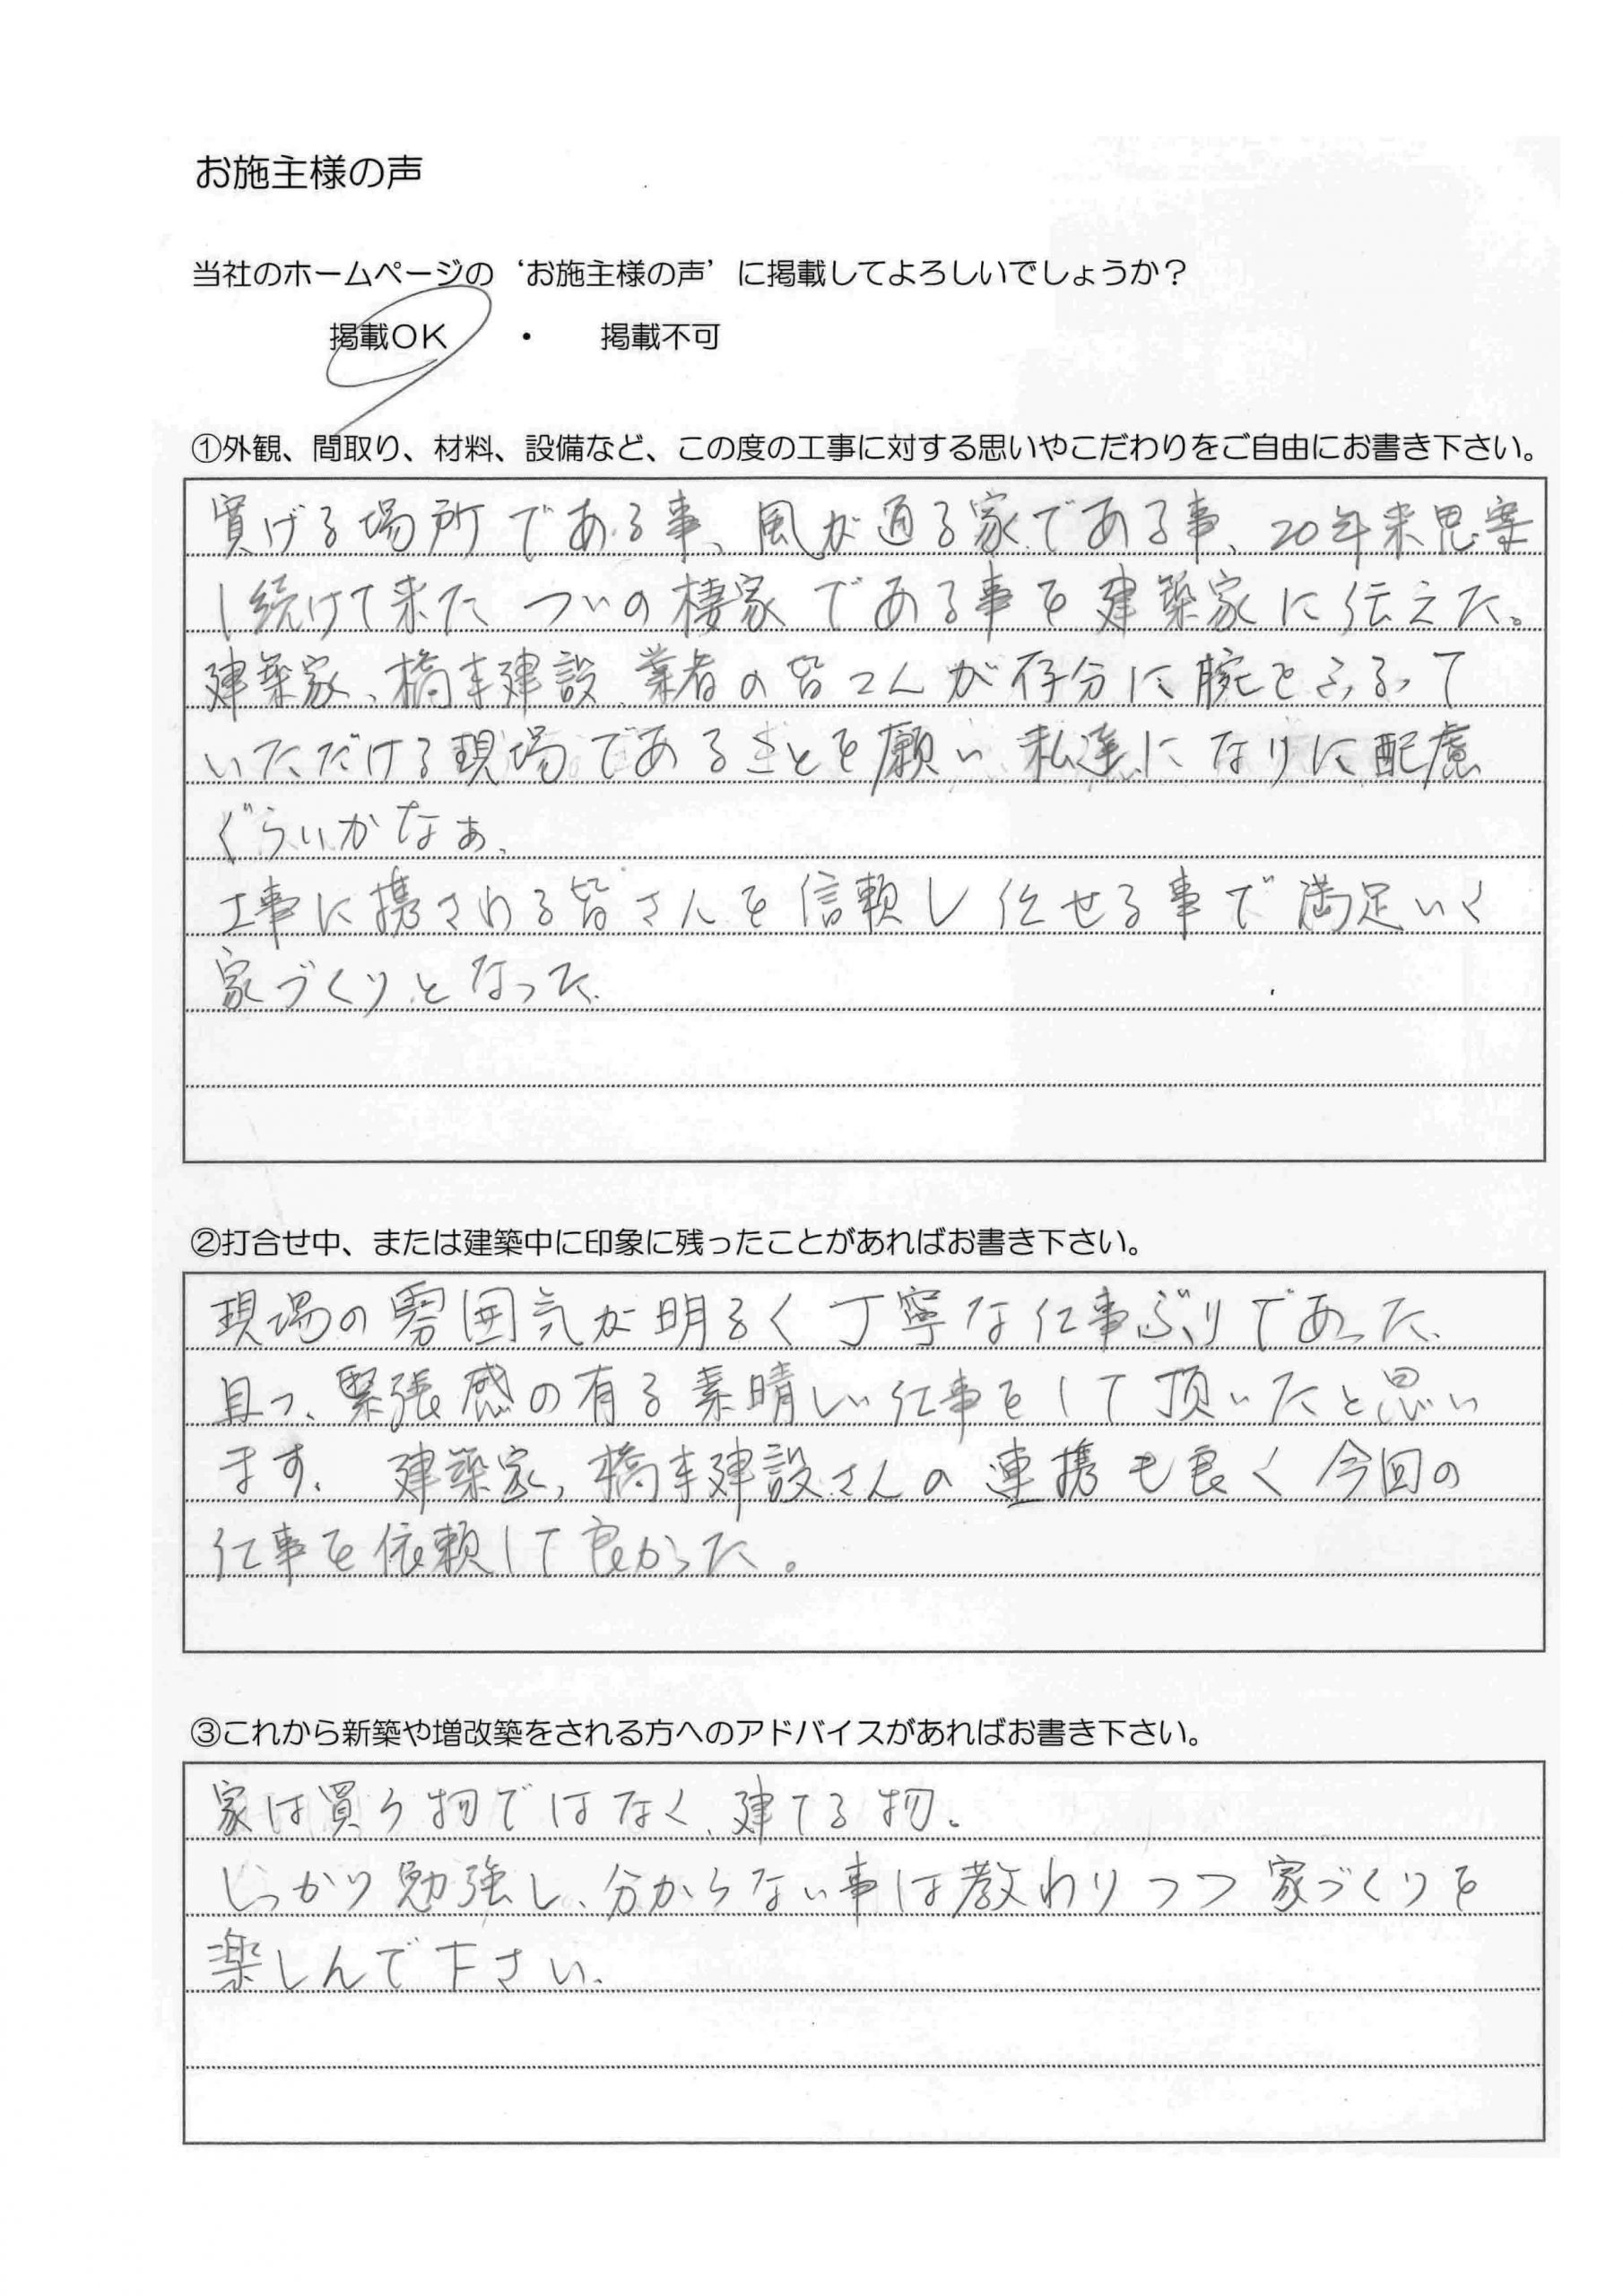 お施主様の声
当社のホームページの‘お施主様の声’に掲載してよろしいでしょうか？
掲載OK ・ 掲載不可
①外観、間取り、材料、設備など、この度の工事に対する思いやこだわりをご自由にお書き下さい。
げる場所である事、風が通る家である事、20年来思案
し続けて来た ついの棲家である事を建築家に伝えた。
建築家、橋本建設、業者の皆さんが存分に腕をふるって
いただける現場であることを願い 私達になりに配慮
ぐらいかなぁ、
工事に携される皆さんを信頼し任せる事で満足いく
家づくりとなった、
②打合せ中、または建築中に印象に残ったことがあればお書き下さい。
現場の雰囲気が明るく丁寧な仕事ぶりであった、
且つ、緊張感の有る素晴しい仕事をして頂いたと思い
ます、 建築家、橋本建設さんの連携も良く今回の
仕事を依頼して良かった。
③これから新築や増改築をされる方へのアドバイスがあればお書き下さい。
家は買う物ではなく、建てる物。
しっかり勉強し、分からない事は教わりつつ家づくりを
楽しんで下さい、